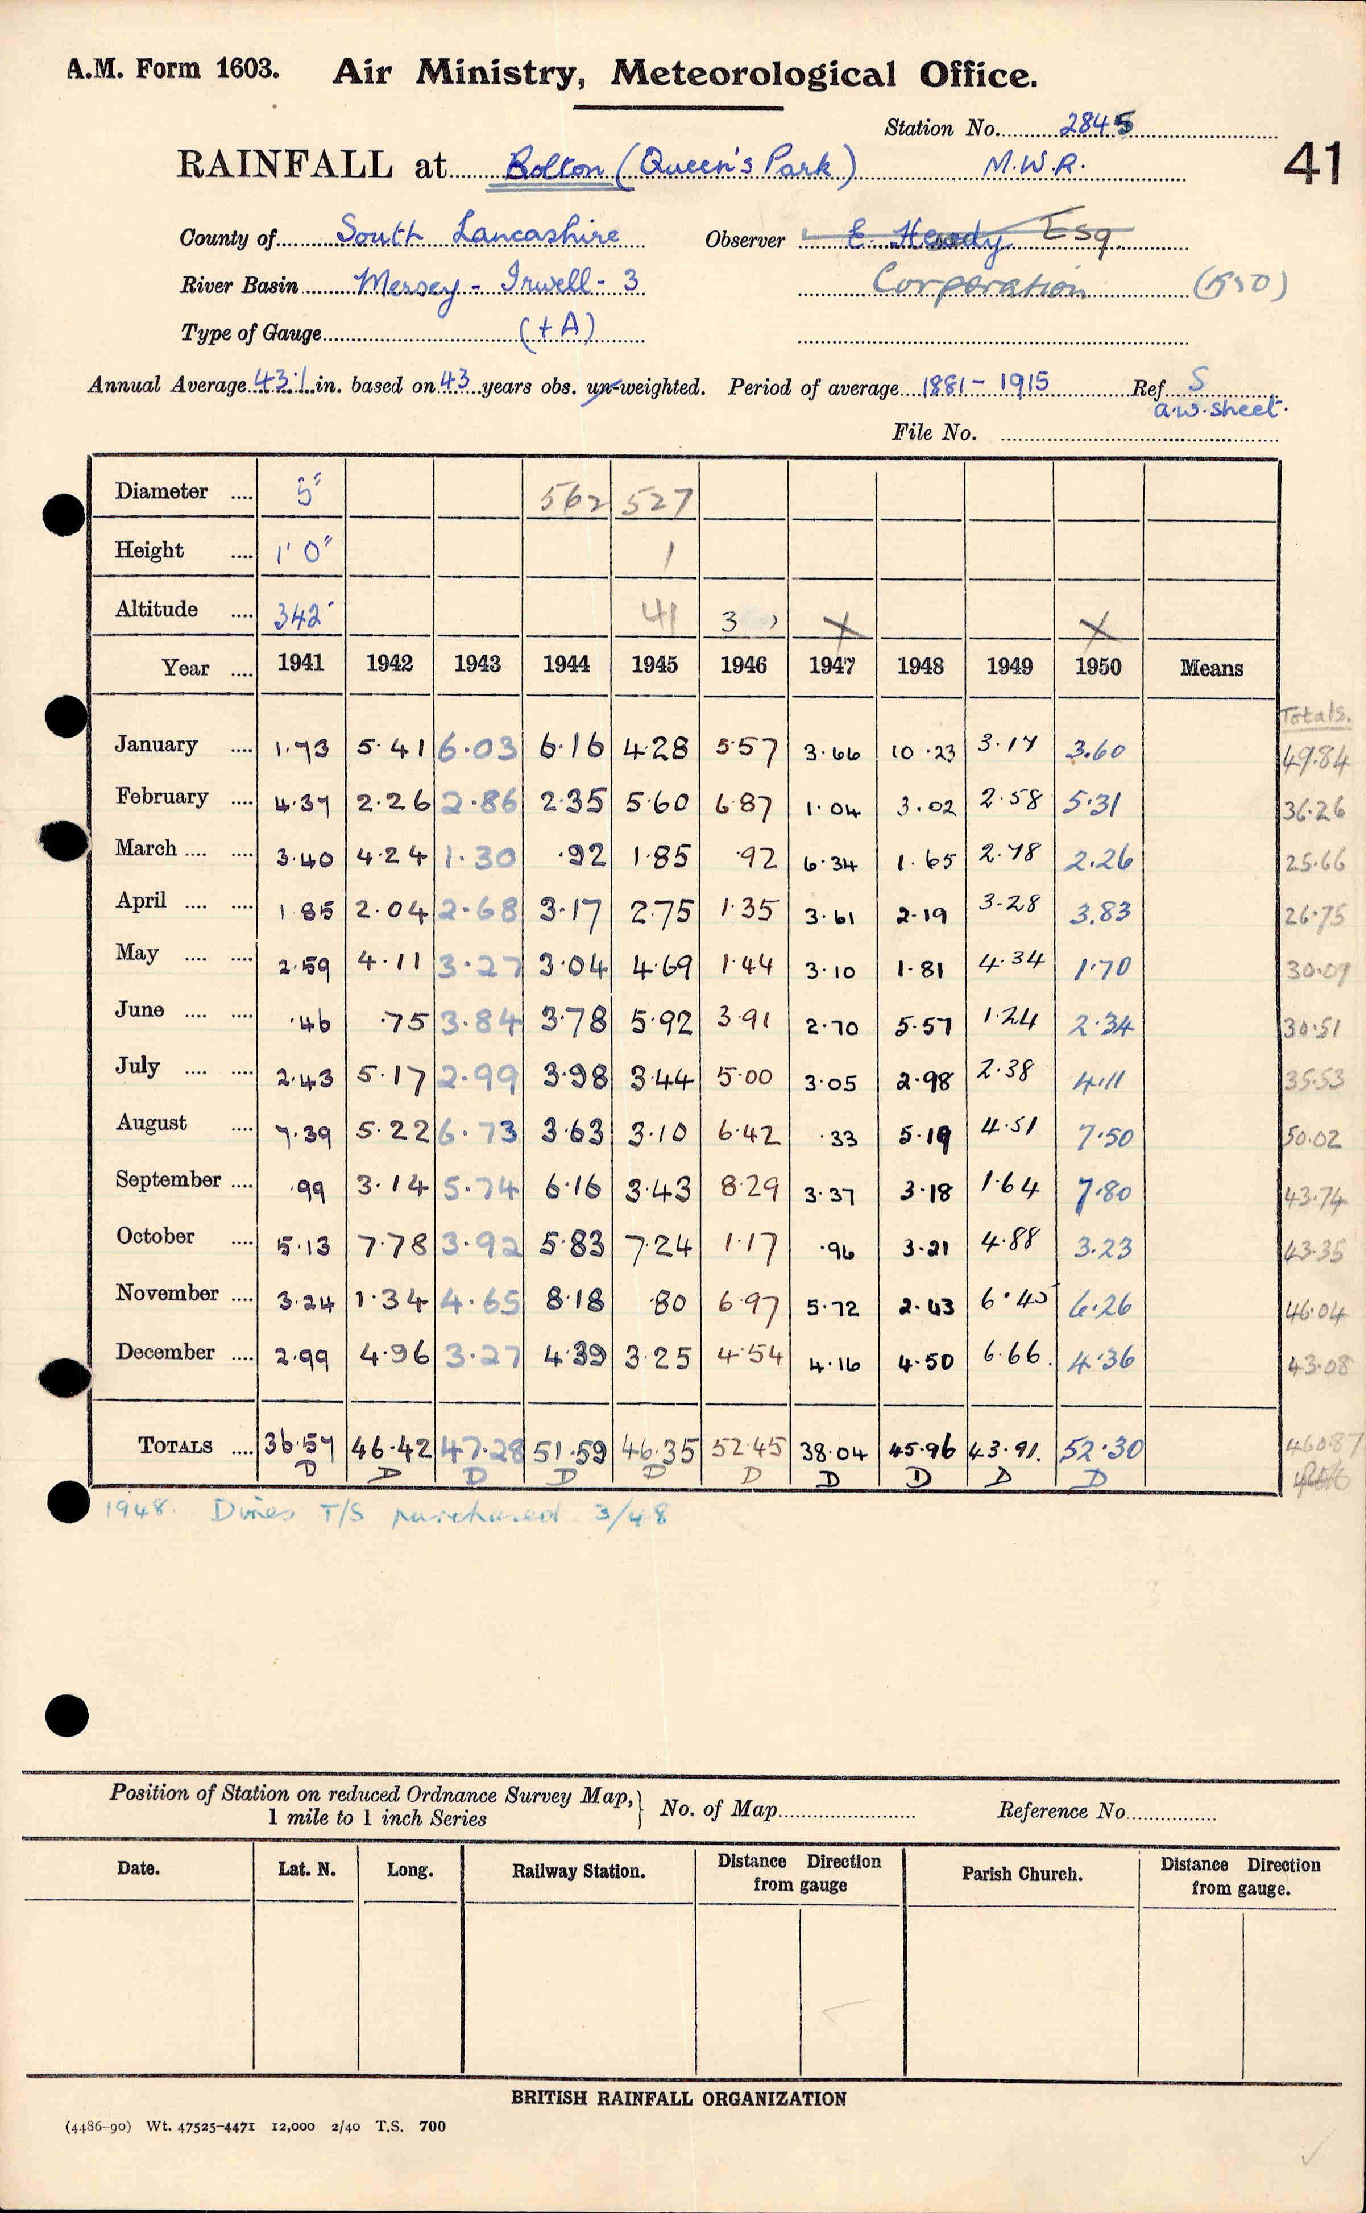 A.M. Form 1603. Air Ministry, Meteorological Office.
Station No. 2845
41
RAINFALL at Bolton (Queen's Park) M.W.R.
County of South Lancashire Observer E. Hendy Esq.
River Basin Mersey - Irwell - 3 Corporation (550)
Type of Gauge (+A)
Annual Average 43.1 in. based on 43 years obs. un-weighted. Period of average 1881-1915 Ref. S
a.w. sheet.
File No.
Diameter .... 5" 562 527
Height .... 1' 0" 1
Altitude .... 342' 41 3 X X
Year .... 1941 1942 1943 1944 1945 1946 1947 1948 1949 1950 Means
Totals.
January .... 1.73 5.41 6.03 6.16 4.28 5.57 3.66 10.23 3.17 3.60 49.84
February .... 4.37 2.26 2.86 2.35 5.60 6.87 1.04 3.02 2.58 5.31 36.26
March .... .... 3.40 4.24 1.30 .92 1.85 .92 6.34 1.65 2.78 2.26 25.66
April .... .... 1.85 2.04 2.68 3.17 2.75 1.35 3.61 2.19 3.28 3.83 26.75
May .... .... 2.59 4.11 3.27 3.04 4.69 1.44 3.10 1.81 4.34 1.70 30.09
June .... .... .46 .75 3.84 3.78 5.92 3.91 2.70 5.57 1.24 2.34 30.51
July .... .... 2.43 5.17 2.99 3.98 3.44 5.00 3.05 2.98 2.38 4.11 35.53
August .... 7.39 5.22 6.73 3.63 3.10 6.42 .33 5.19 4.51 7.50 50.02
September .... .99 3.14 5.74 6.16 3.43 8.29 3.37 3.18 1.64 7.80 43.74
October .... 5.13 7.78 3.92 5.83 7.24 1.17 .96 3.21 4.88 3.23 43.35
November .... 3.24 1.34 4.65 8.18 .80 6.97 5.72 2.43 6.45 6.26 46.04
December .... 2.99 4.96 3.27 4.39 3.25 4.54 4.16 4.50 6.66 4.36 43.08
TOTALS .... 36.57 46.42 47.28 51.59 46.35 52.45 38.04 45.96 43.91. 52.30 460.87
D D D D D D D D D D
1948. Dines T/S purchased 3/48
Position of Station on reduced Ordnance Survey Map, 1 mile to 1 inch Series } No. of Map Reference No.
Date. Lat. N. Long. Railway Station. Distance Direction from gauge Parish Church. Distance Direction from gauge.
BRITISH RAINFALL ORGANIZATION
(4486-90) Wt. 47525-4471 12,000 2/40 T.S. 700